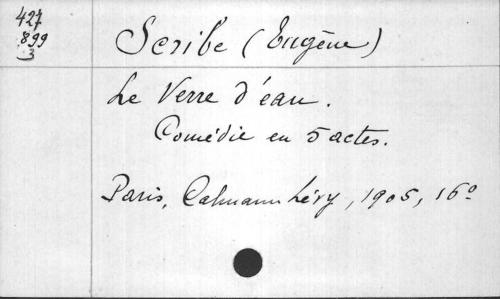 427
899
3
Scribe (Eugène)
Le Verre d'eau.
Comédie en 5 actes.
Paris, Calmann Lévy, 1905, 16º